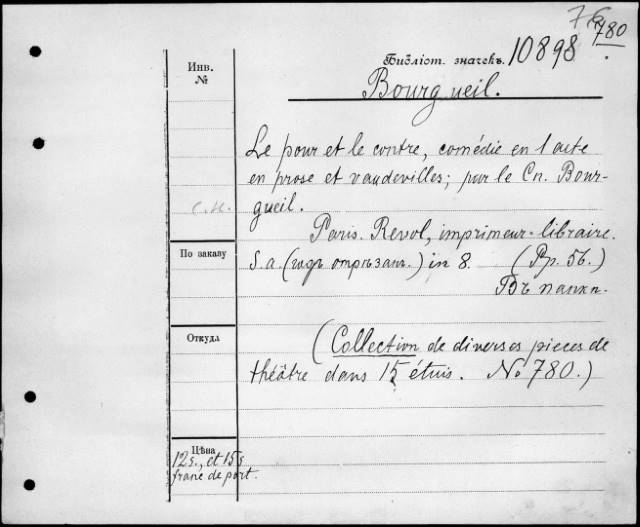 780
Библіот. значекъ. 10898
Инв.
№
Bourgueil.
Le pour et le contre, comédie en 1 acte
en prose et vaudevilles; par le Cn. Bour-
gueil.
С.Н.
Paris. Revol, imprimeur-libraire.
По заказу
S. a. (годъ отрѣзанъ.) in 8. (Pp. 56.)
Въ папкѣ.
Откуда
(Collection de diverses pieces de
théâtre dans 15 étuis. No 780.)
Цѣна
12 s., et 15 s.
franc de port.